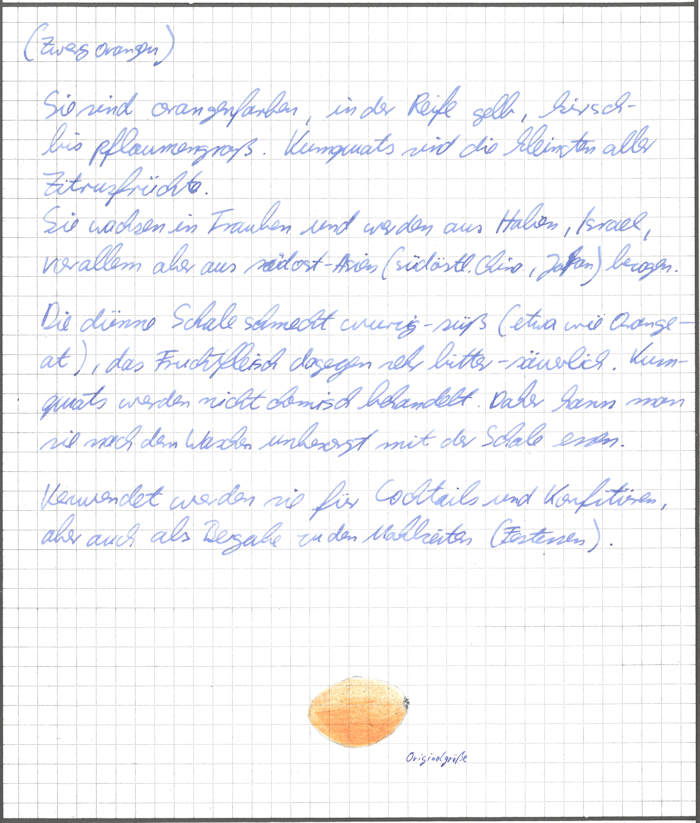 (Zwergorangen)
Sie sind orangenfarben, in der Reife gelb, kirsch-
bis pflaumengroß. Kumquats sind die kleinsten aller
Zitrusfrüchte.
Sie wachsen in Trauben und werden aus Italien, Israel,
vor allem aber aus südost-Asien (südöstl. China, Japan) bezogen.
Die dünne Schale schmeckt würzig-süß (etwa wie Orange-
at), das Fruchtfleisch dagegen sehr bitter-säuerlich. Kum-
quats werden nicht chemisch behandelt. Daher kann man
sie nach dem Waschen unbesorgt mit der Schale essen.
Verwendet werden sie für Cocktails und Konfitüren,
aber auch als Beigabe zu den Mahlzeiten (Festessen).
Originalgröße